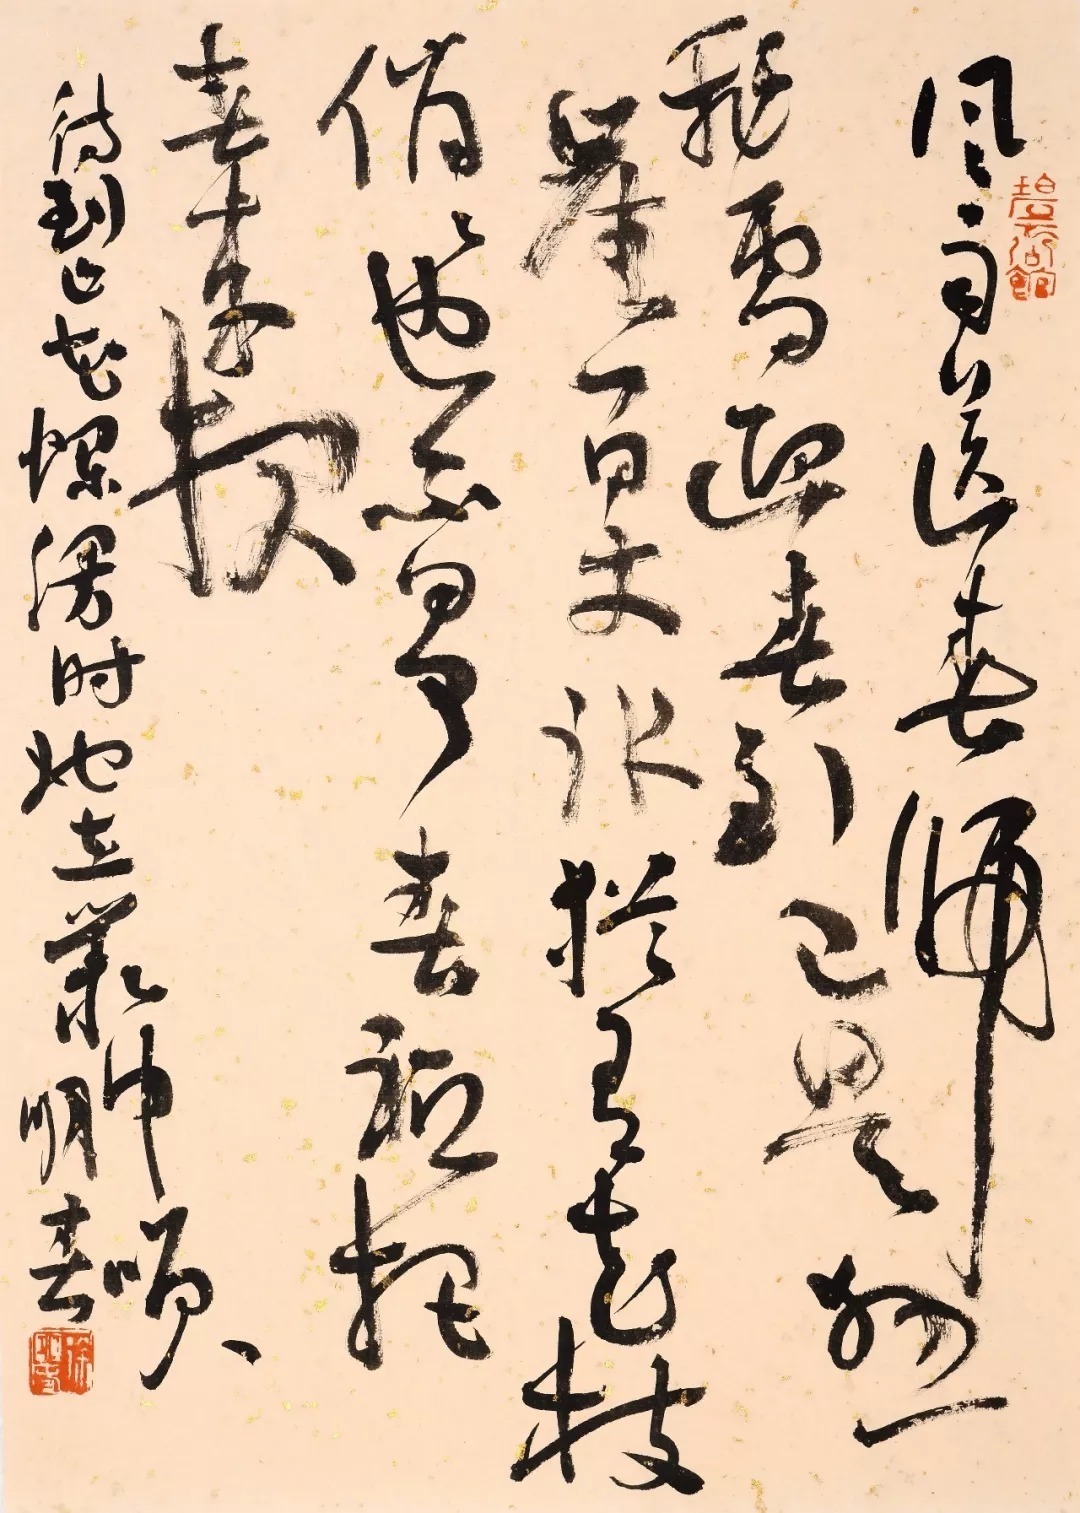 风雨送春歸
飛雪迎春到已是懸
崖百丈冰犹有花枝
俏俏也不争春祗把
春来报
待到山花爛漫时她在丛中咲 明春